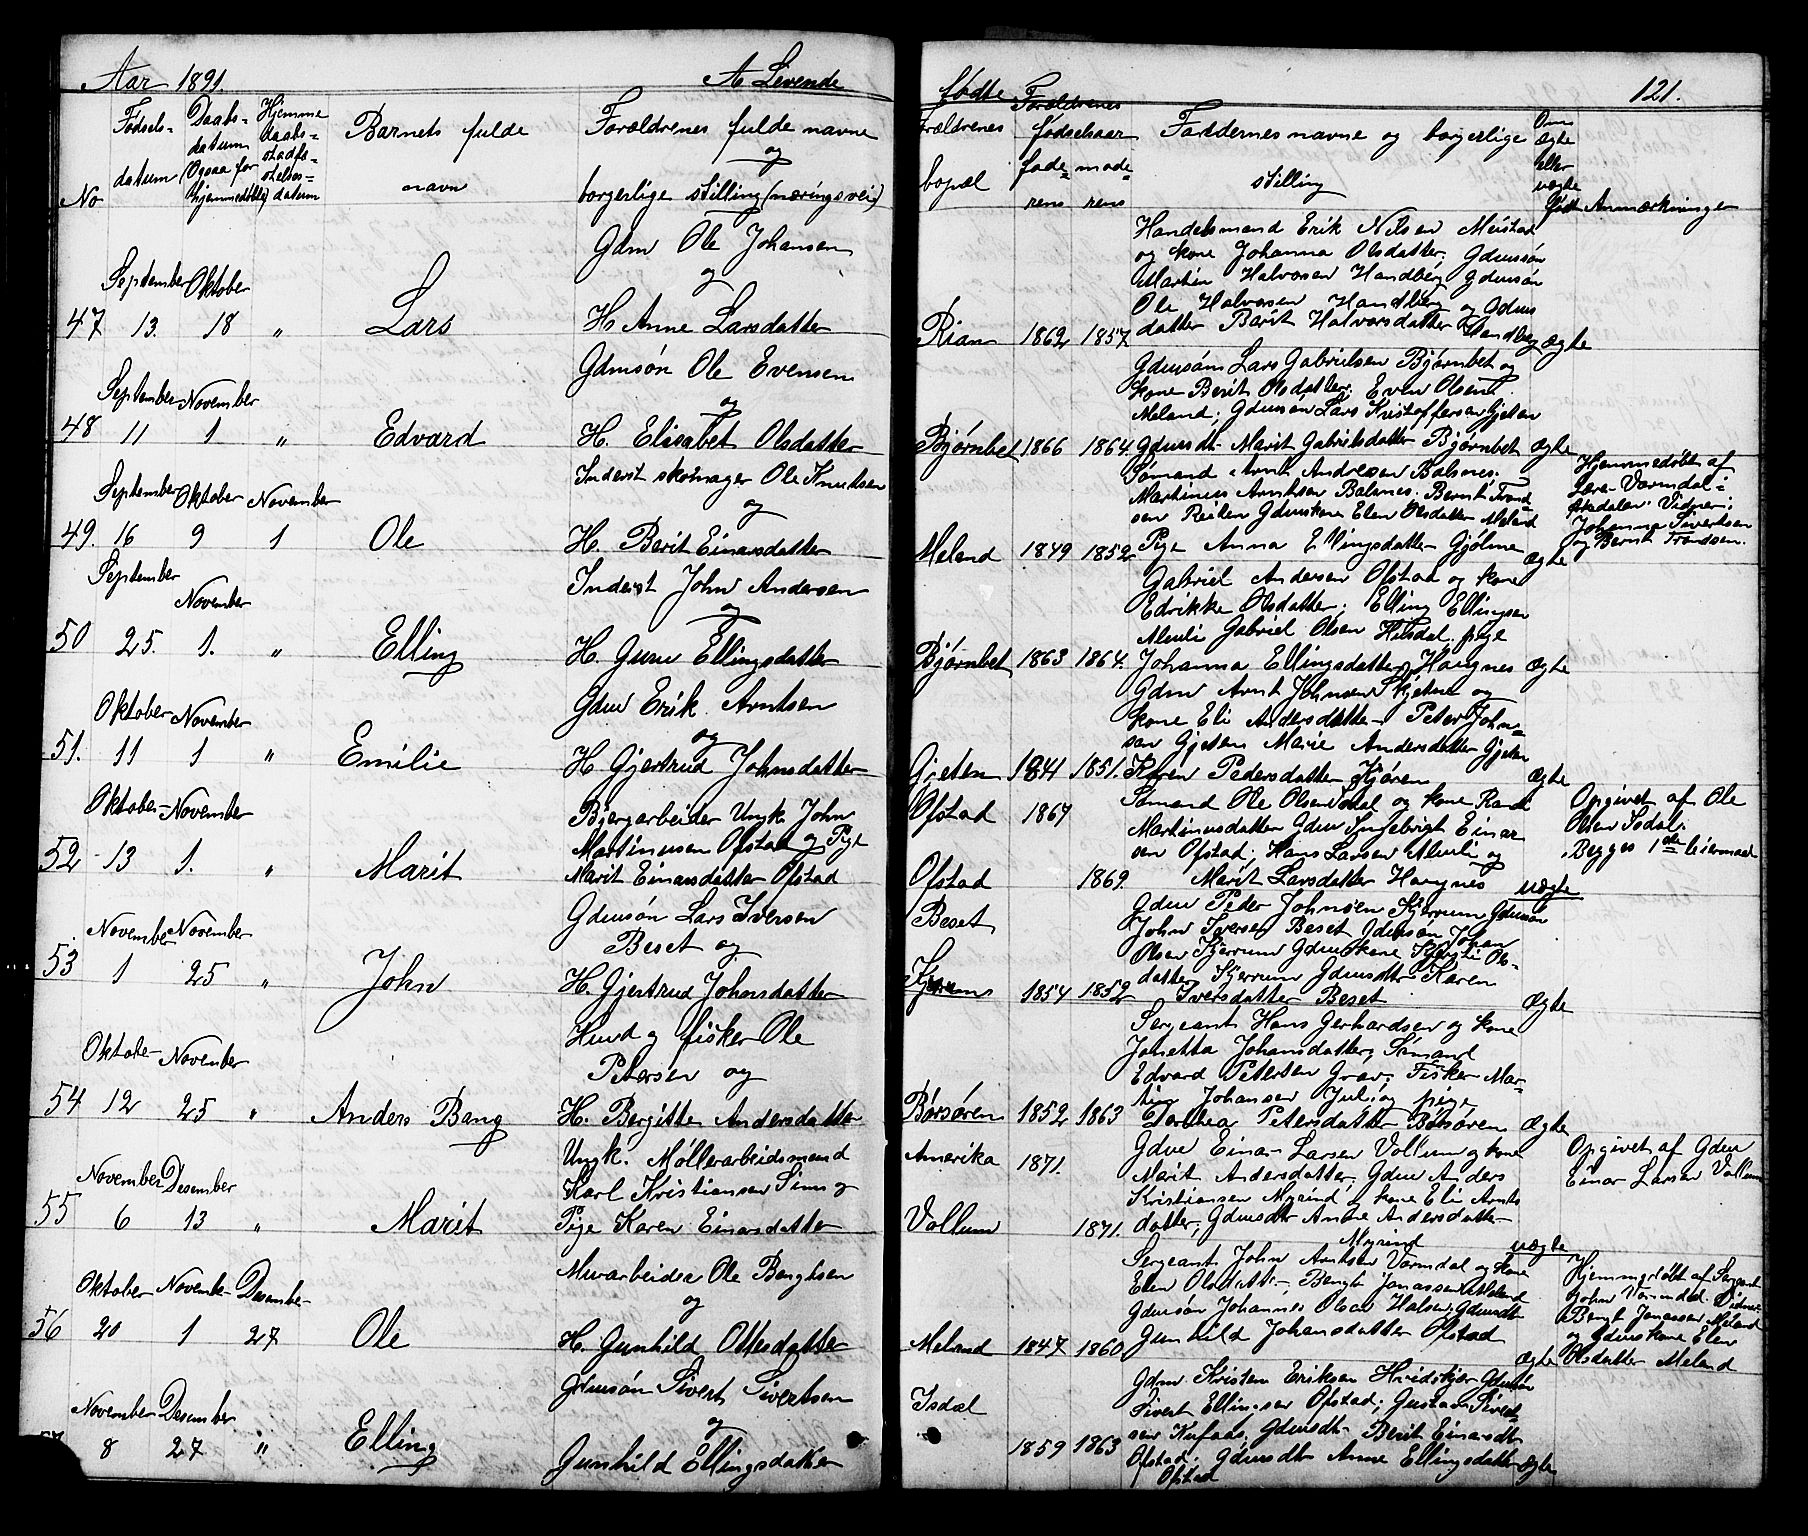 Aar 1891.
A Levende
fødte
121.
No
Fødsels-
datum
Daabs-
datum
(Ogsaa for
hjemmedøbte)
Hjemme
daabs-
stadfæ-
stelses-
datum
Barnets fulde
navn
Forældrenes fulde navne
og
borgerlige stilling (næringsvei)
Forældrenes
bopæl
Forældrenes
fødselsaar
fade- mode-
rens rens
Faddernes navne og borgerlige
stilling
Om
ægte
eller
uægte
født
Anmærkninger
47
September Oktober
13. 18 "
Lars
Gdm Ole Johansen
og
H. Anne Larsdatter
Rian 1862 1857
Handelsmand Erik Nilsen Meistad
og kone Johanna Olsdatter. Gdmssøn
Martin Halvorsen Handberg Gdmssøn
Ole Halvorsen Handberg og Gdms
datter Berit Halvorsdatter Handberg
ægte
48
September November
11 1 "
Edvard
Gdmsøn Ole Evensen
og
H. Elisabet Olsdatter
Bjørnbet 1866 1864.
Gdmsøn Lars Gabrielsen Bjørnbet og
kone Berit Olsdatter; Even Olsen
Meland; Gdmsøn Lars Kristoffersen Gjeten
Gdmsdt. Marit Gabrielsdatter Bjørnbet
ægte
49.
September Oktober November
16 9 1
Ole
Inderst skomager Ole Knudsen
og
H. Berit Einarsdatter
Meland 1849 1852
Sømand Arnt Andresen Balsnes.
Martinus Arntsen Balsnes. Bernt Trond
sen Reiten Gdmskone Elen Olsdatter Meland
Pige Anna Ellingsdatter Gjølme
ægte
Hjemmedøbt af
Lars Vormdal i
Vidner:
Johanna Sivertsen
og Bernt Trondsen.
50
September November
25. 1. "
Elling
Inderst John Andersen
og
H. Guru Ellingsdatter
Bjørnbet 1863 1864.
Gabriel Andersen Ofstad og kone
Edrikke Olsdatter; Elling Ellingsen
Gabriel Olsen pige
Johanna Ellingsdatter Haugnes
ægte
51.
Oktober November
11 1 "
Emilie
Gdm Erik Arntsen
og
H. Gjertrud Johnsdatter
Gjeten 1841 1851.
Gdm Arnt Johnsen Skjetne og
kone Eli Andersdatter Peter John-
sen Gjeten Marie Andersdatter Gjeten
Karen Pedersdatter Kjøren
ægte
52
Oktober November
13 1. "
Marit
Bjergarbeider Ungk. John
Martinusen Ofstad og Pige
Marit Einarsdatter Ofstad
Ofstad 1867
Ofstad 1869.
Sømand Ole Olsen Isdal og kone Randi
Martinusdatter Gdm Ingebrigt Einar
sen Ofstad; Hans Larsen og
Marit Larsdatter Haugnes
uægte
Opgivet af Ole
Olsen Isdal.
Begges 1ste leiermaal
53
November November
1 25 "
John
Gdmsøn Lars Iversen
Beset og
H. Gjertrud Johnsdatter
Beset
1854 1852
Gdm Peder Johnsen Kjerrum Gdmsøn
John Iversen Beset Gdmsøn Johan
Olsen Kjerrum Gdmskone Ols-
datter Kjerrum Gdmsdt. Karen
Iversdatter Beset
ægte
54
Oktober November
12 25 "
Anders Bang
Husmd og fisker Ole
Petersen og
H. Bergitte Andersdatter
Børsøren 1852 1863
Sergeant Hans Gerhardsen og kone
Jonetta Johansdatter; Sømand
Edvard Petersen Grav; Fisker Mar-
tin Johansen og pige
Dorthea Petersdatter Børsøren
ægte
55
November Desember
6 13 "
Marit
Ungk. Møllerarbeidsmand
Karl Kristiansen og
Pige Karen Einarsdatter
Amerika 1871.
Vollum 1871.
Gdm Einar Larsen Vollum og kone
Marit Andersdatter, Gdm Anders
Kristiansen Myrind og kone Eli Arnts
datter; Gdmsdt. Anne Andersdatter
Myrind
uægte
Opgivet af Gdm
Einar Larsen Vollum
56
Oktober November Desember
20 1 27
Ole
Murarbeider Ole Bengtsen
og
H. Gunhild Ottesdatter
Meland 1847 1860
Sergeant John Arntsen Vormdal og kone
Elen Olsdatter, Bengt Jonassen Meland
Gdmsøn Johannes Olsen Halsen, Gdmsdt.
Gunhild Johansdatter Ofstad
ægte
Hjemmedøbt af Sergeant
John Vormdal Vidner:
Bengt Jonassen Meland
og Gdmskone Elen
Olsdatter Meland
57
November Desember
8 27 "
Elling
Gdmsøn Sivert Sivertsen
og
Gunhild Ellingsdatter
Isdal
1859 1863
Gdm Kristen Eriksen Gdmsøn
Sivert Ellingsen Ofstad; Gustav Sivert-
sen Kufaas, Gdmsdt. Berit Einarsdt
Ofstad. Gdmsdt. Anne Ellingsdatter
Ofstad
ægte